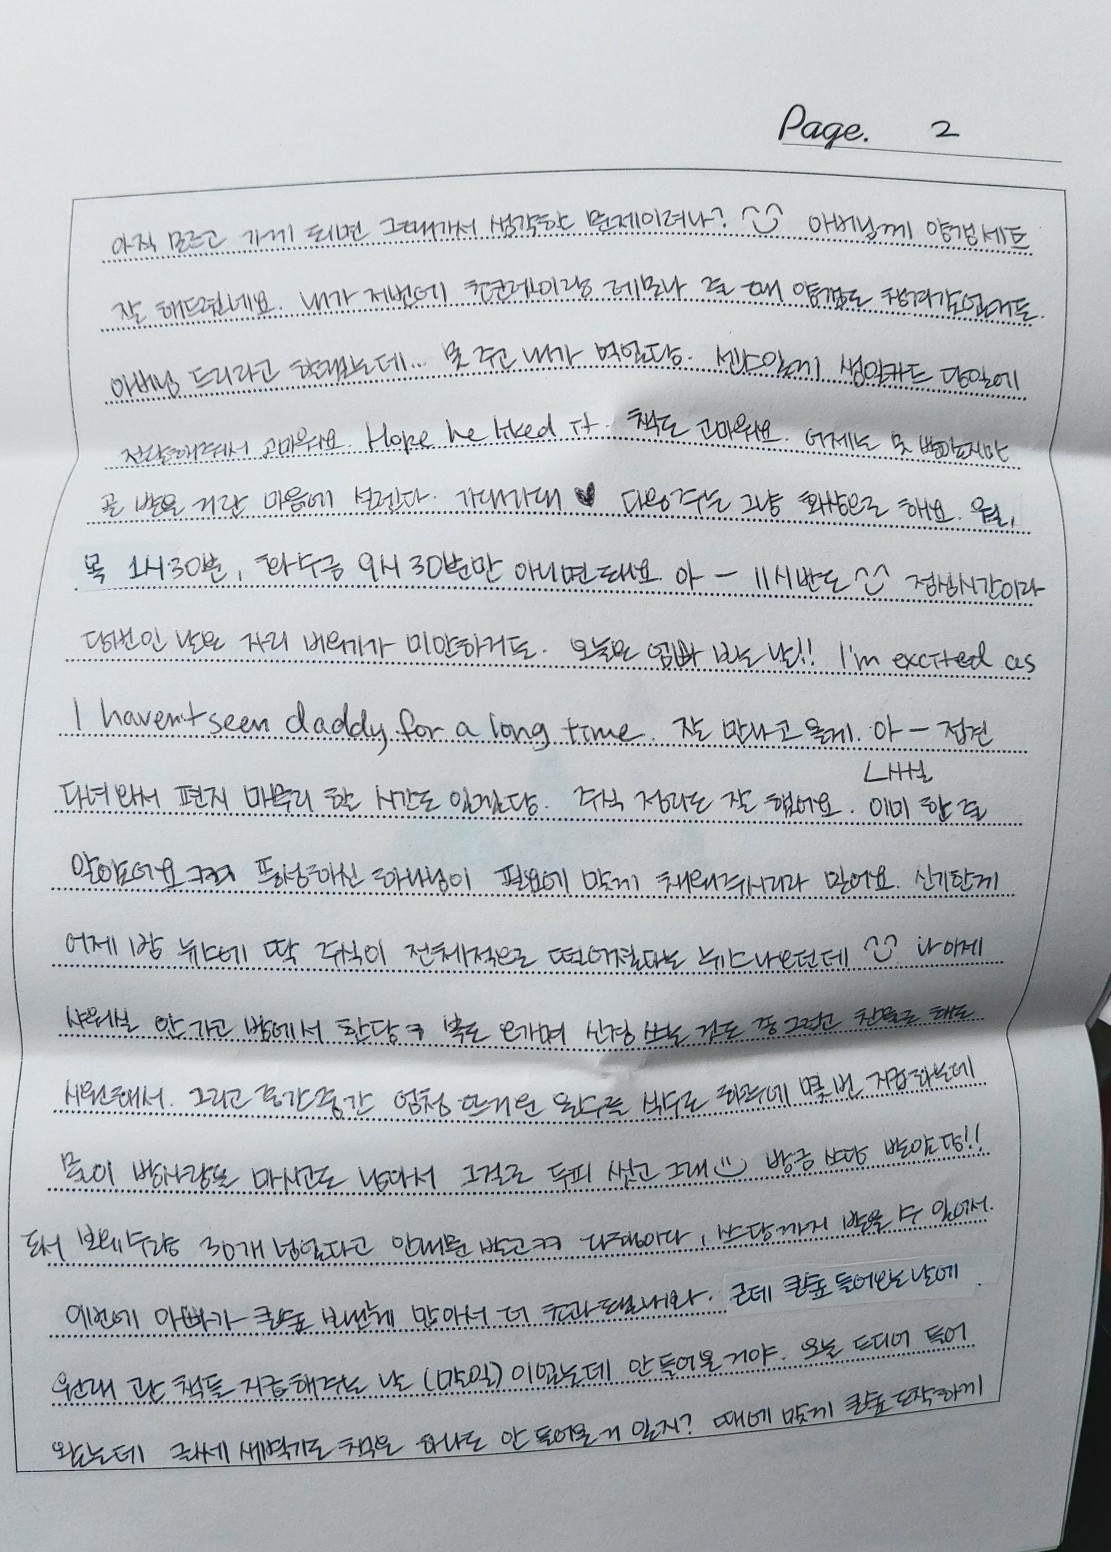 Page. 2
아직 모르고 가게 되면 그때가서 생각할 문제이려나? 아버님께 양갱세트
잘 해드렸네요. 내가 저번에 초코레이랑 레모나 줄 때 양갱도
아버님 드리라고 한건데... 못 주고 내가 먹었당. 생일카드 당일에
전달해줘서 고마워요. Hope he liked it. 책도 고마워요. 어제는 못 받았지만
곧 받을 거란 마음에 설렌다. 기대기대 ♥ 다음주는 그냥 화상으로 해요. 월,
목 1시30분, 화수금 9시 30분만 아니면 돼요. 아 - 11시반도 점심시간이라
당번인 날은 자리 비우기가 미안하거든. 오늘은 엄빠 보는 날!! I'm excited as
I haven't seen daddy for a long time. 잘 만나고 올게. 아 - 접견
다녀와서 편지 마무리 할 시간도 있겠당. 주식 정리도 잘 했어요. 이미 한 줄
내심
알았어요 ㅋㅋㅋ 풍성하신 하나님이 필요에 맞게 채워주시리라 믿어요. 신기한게
어제 뉴스에 딱 주식이 전체적으로 떨어졌다는 뉴스나오던데 나 이제
샤워실 안 가고 방에서 한당ㅋ 복도 오가며 신경 쓰는 것도 좀 그렇고 찬물로 해도
시원해서. 그리고 중간중간 엄청 뜨거운 온수를 식수로 하루에 몇 번 지급하는데
물이 방사람들 마시고도 남아서 그걸로 두피 씻고 그래 방금 쓰당 받았당!!
도서 보유수량 30개 넘었다고 안내문 받고ㅋㅋ 다행이다, 쓰당까지 받을 수 있어서.
이번에 아빠가 칼숲 보낸게 많아서 더 초과됐나봐. 근데 칼숲 들어오는 날에
원래 관 책들 지급해주는 날 (말일)이었는데 안 들어온거야. 오늘 드디어 들어
왔는데 글쎄 새벽기도 책은 하나도 안 들어온거 있지? 때에 맞게 칼숲 도착하게